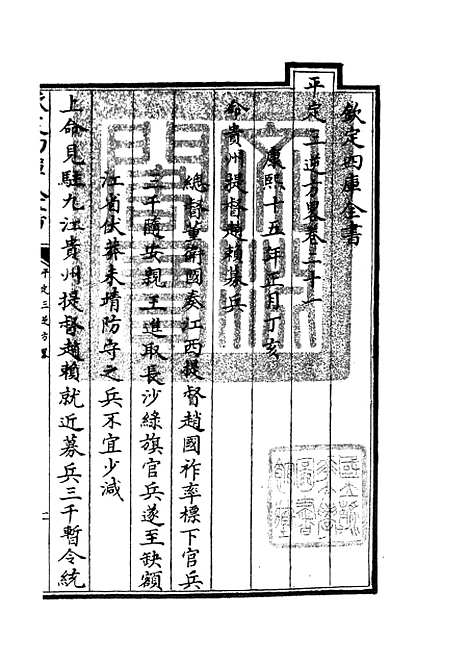 欽定四庫全書
平定三逆方畧卷二十一
康熙十五年正月丁亥
命貴州提督趙賴募兵
總督董衛國奏江西提督趙國祚率標下官兵
三千隨安親王進取長沙綠旗官兵遂至缺額
江省伏莽未靖防守之兵不宜少減
上命見駐九江貴州提督趙賴就近募兵三千暫令統
平定三逆方畧